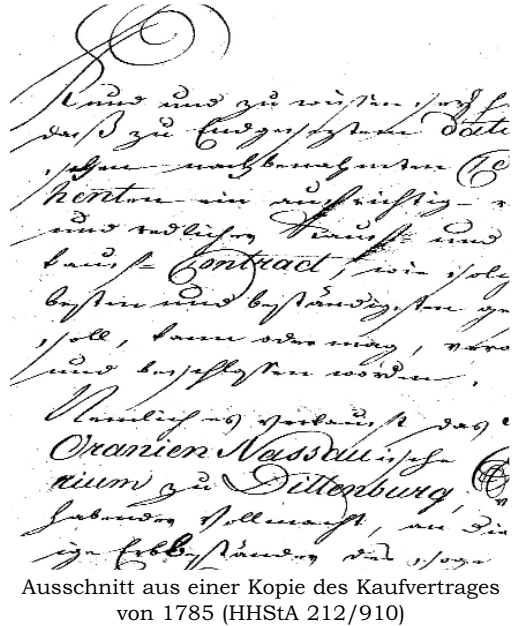 Kund und zu wissen sey h
daß zu Endgeseztem dato
schen nachbenahmten Co
henten ein aufrichtig-
und redlicher Kauf- und
kauf- Contract, wie solc
besten und beständigsten ge
soll, kann oder mag, vera
und beschlossen worden.
Nemlich es verkauft das
Oranien Nassauische
rium zu Dillenburg,
habender Vollmacht, an die
ige Erbbeständer des soge
Ausschnitt aus einer Kopie des Kaufvertrages
von 1785 (HHStA 212/910)